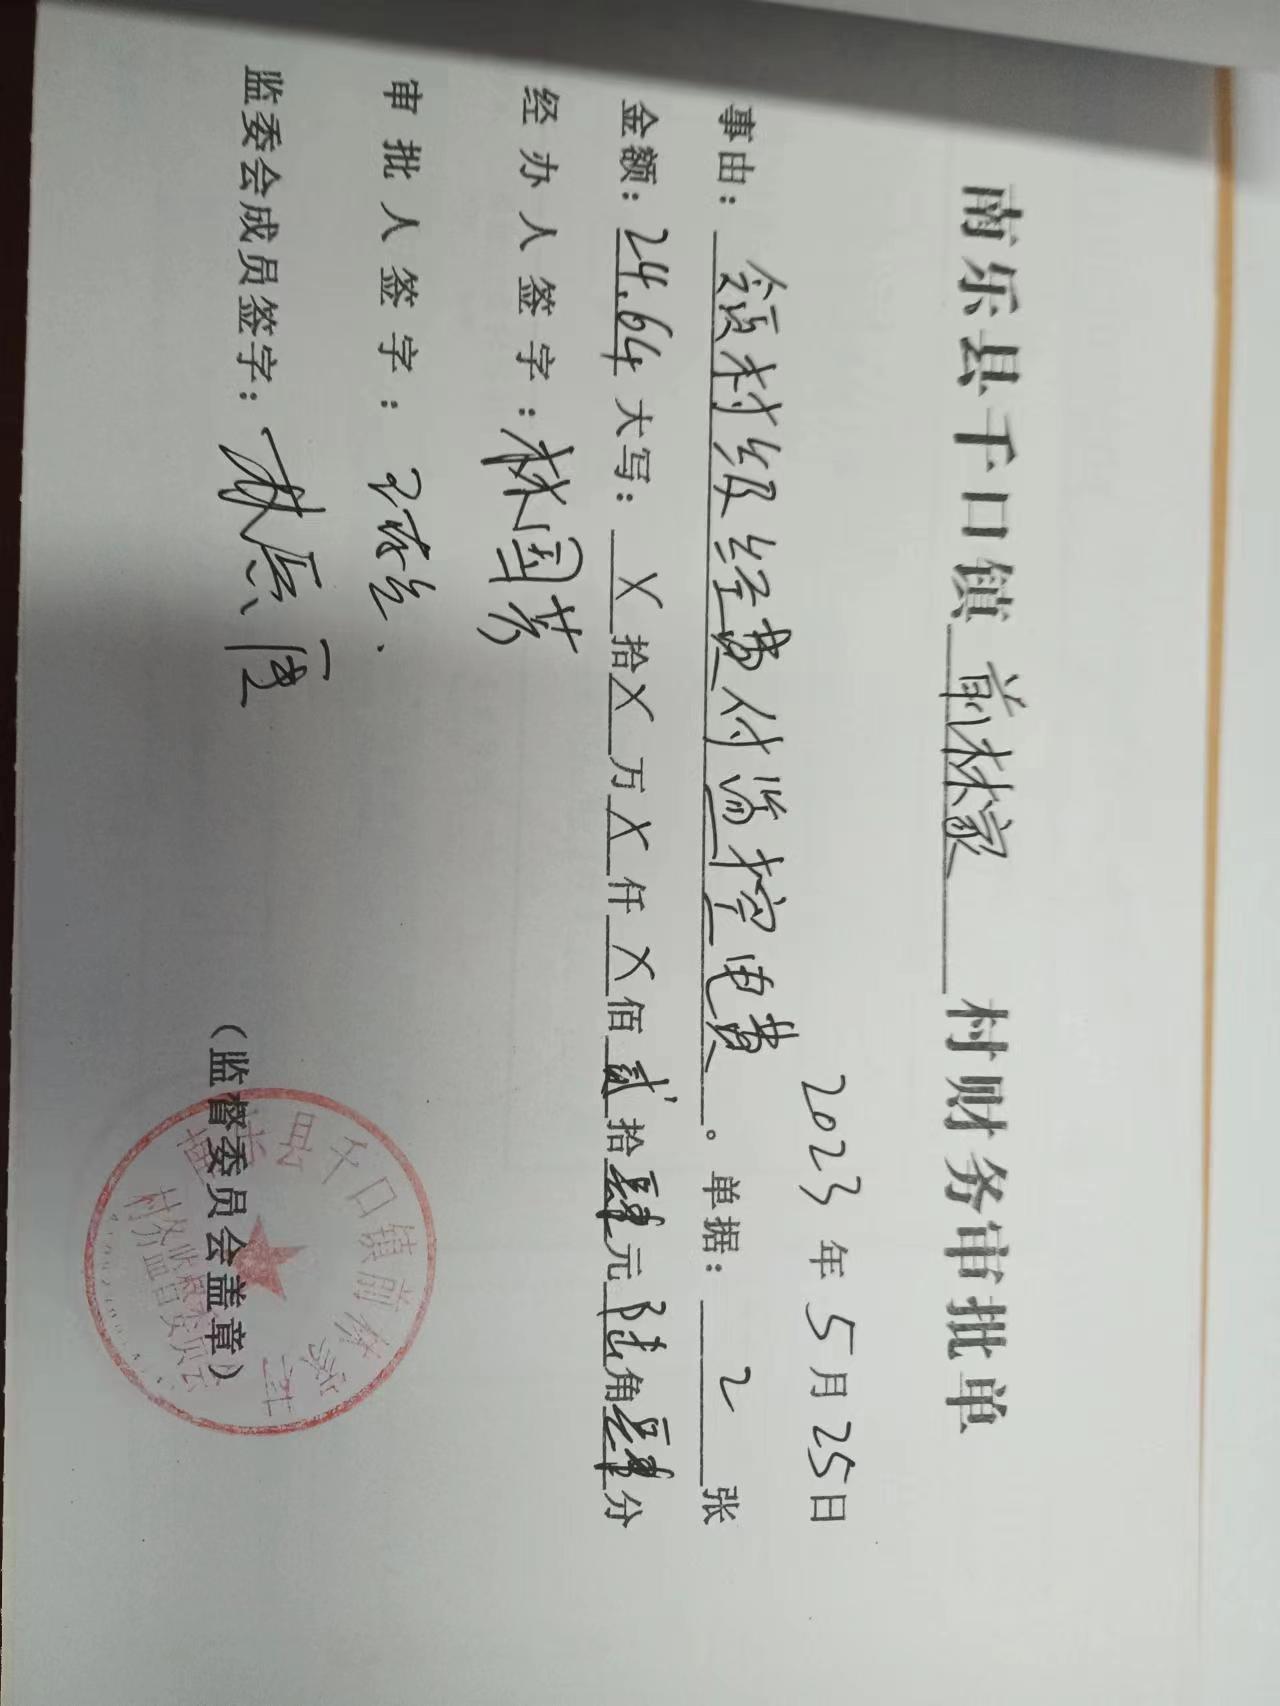 南乐县千口镇 前林家 村财务审批单
2023年5月25日
事由：领村级经费付监控电费。单据：2张
金额：24.64 大写：X拾X万X仟X佰贰拾肆元陆角肆分
经办人签字：林国芳
审批人签字：
监委会成员签字：
（监督委员会盖章）
南乐县千口镇前林家村
村务监督委员会